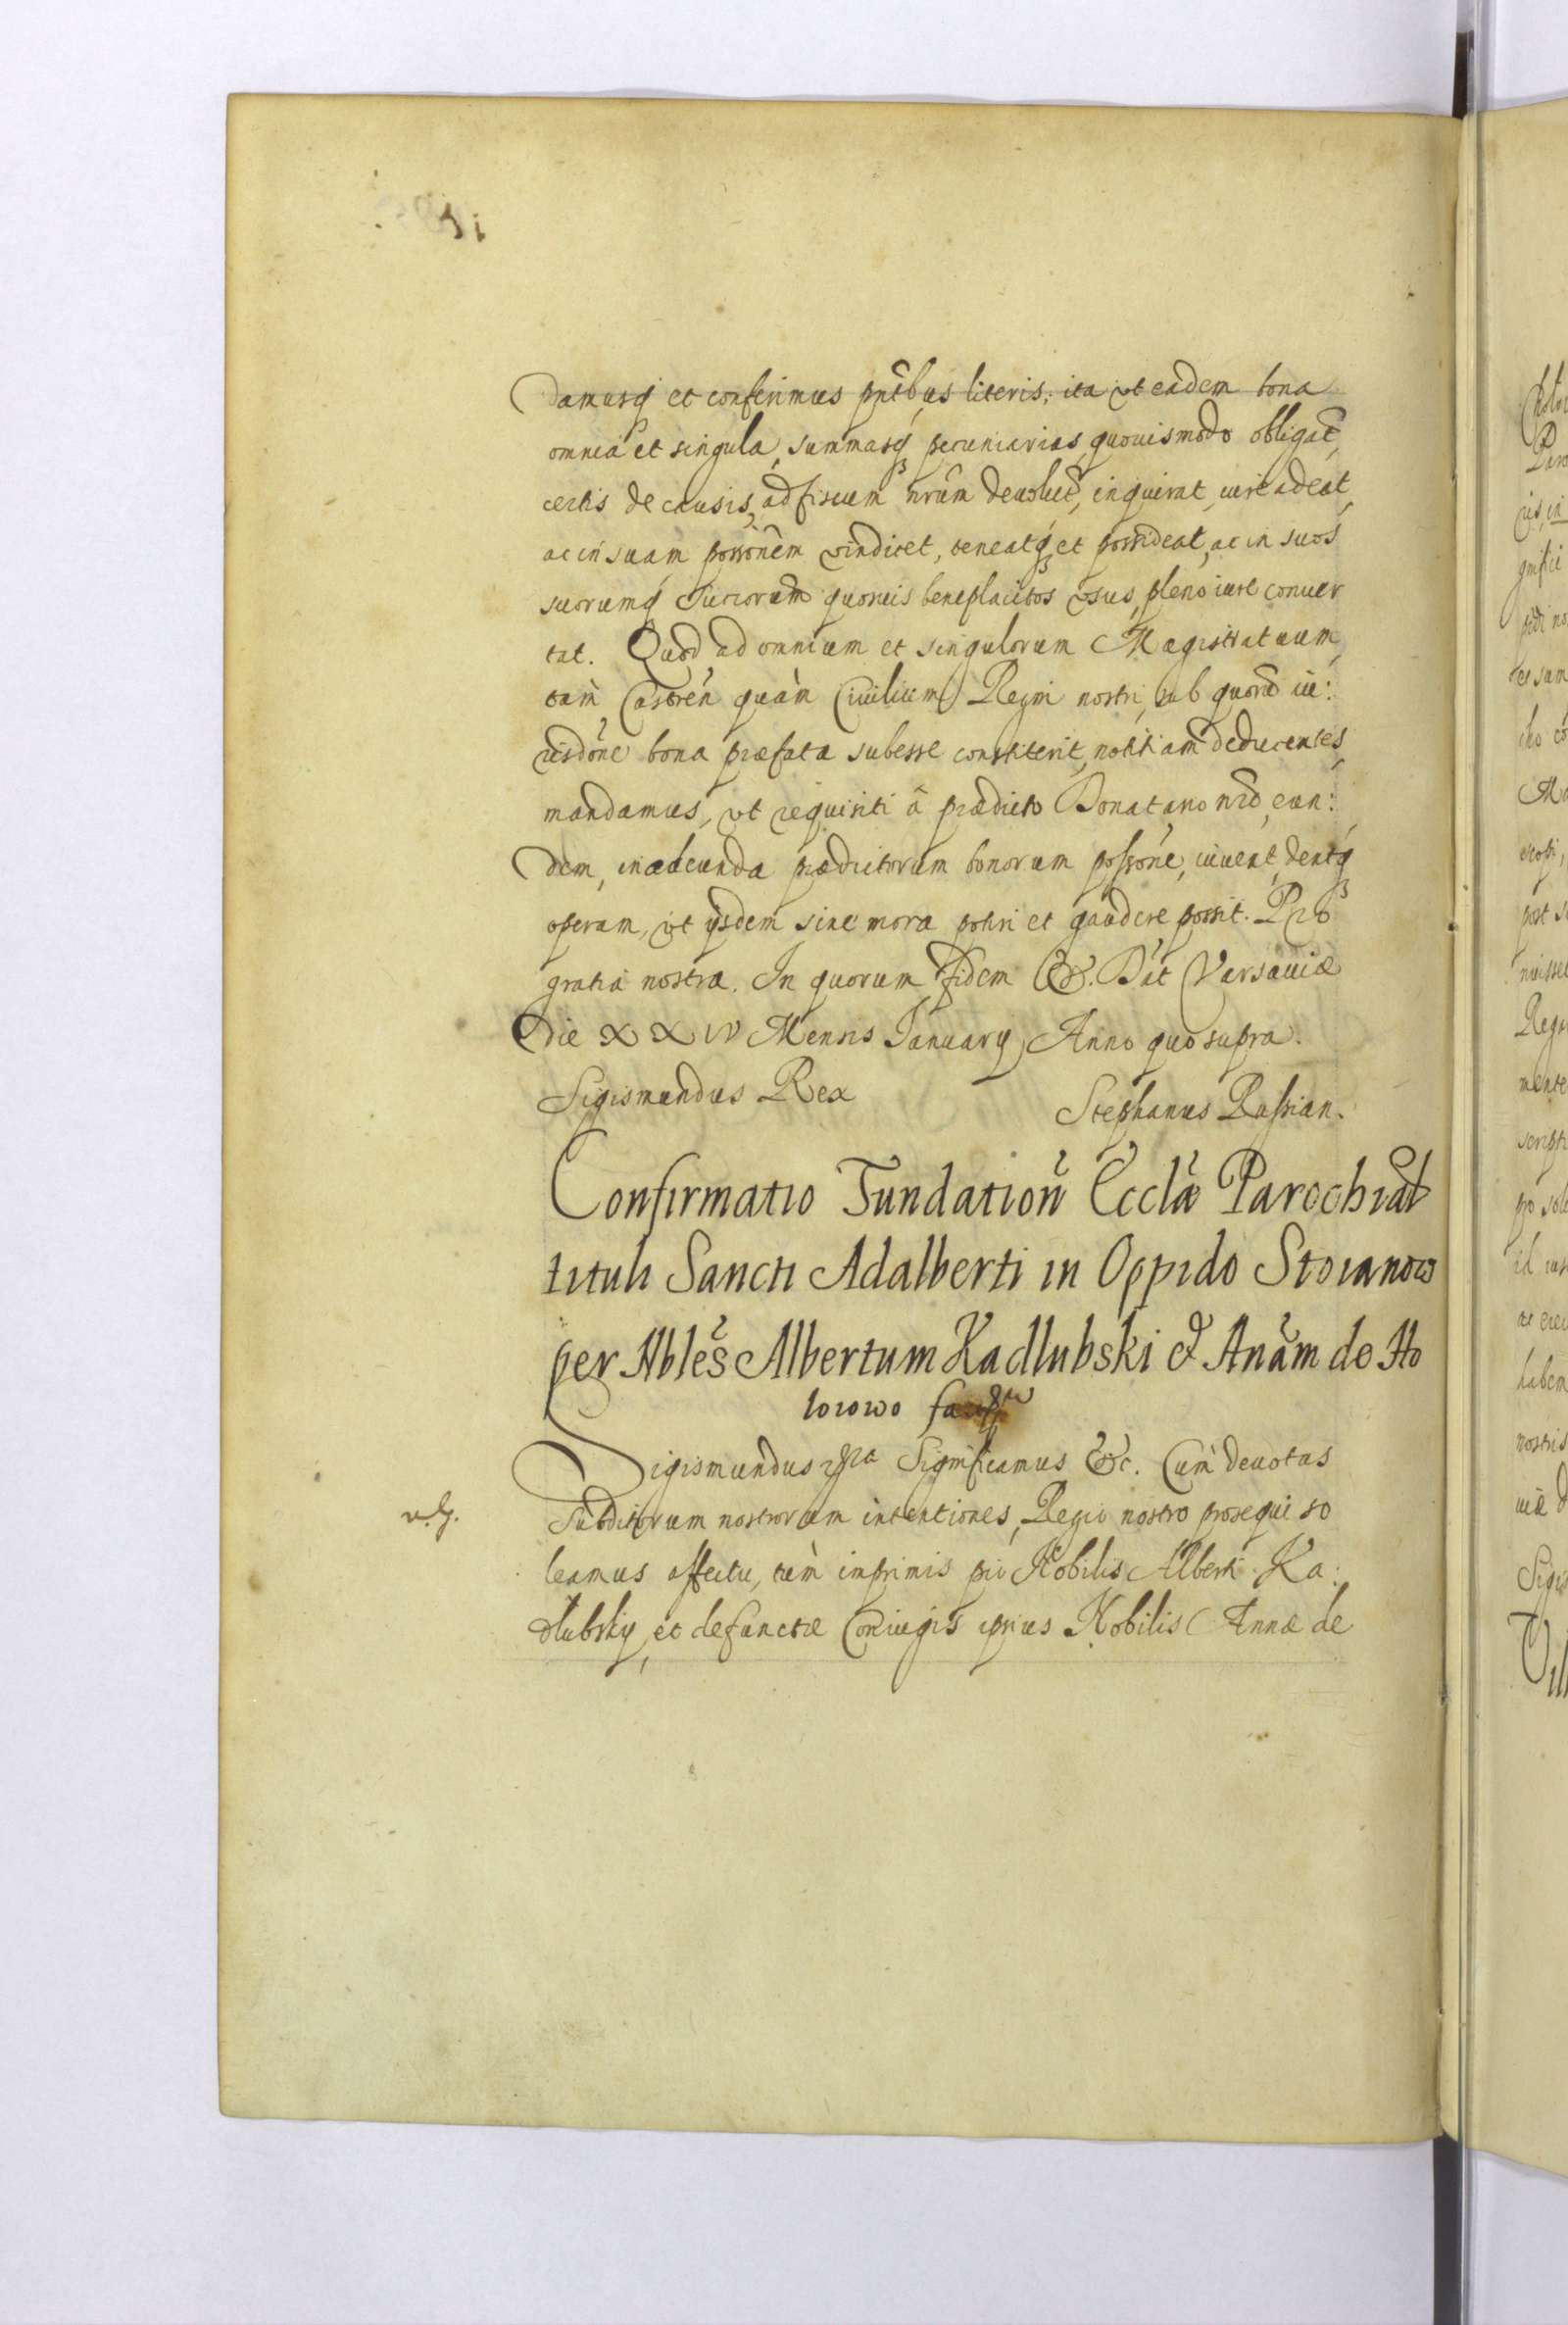 damusq́ et conferimus pñtbus literis, ita vt eadem bona
omnia et singula, summasq́ pecuniarias quouismodo obligat̃,
certis de causis, ad fiscum nr̃um deuolut̃, inquirat, iure adeat,
ac in suam possonẽm vindicet, teneatq́ et possideat, ac in suos
suorumq́ Succorum quoruis beneplacitos vsus, pleno iure conuer
tat. Quod ad omnium et singulorum Magistratuum,
tam̀ Castreń quam̀ Ciuilium Regni nostri, sub quorũ iu:
risdõne bona præfata subesse constiterit, notitiam deducentes,
mandamus, vt requisiti â prædicto Donatario nr̃o, eun:
dem, in adeunda prædictorum bonorum possonẽ, iuuent, dentq́
operam, vt ijsdem sine mora potiri et gaudere possit. Pro
gratia nostra. In quorum fidem &c. Dat́ Varsauiæ
die XXIV Mensis Januarij Anno quo supra.
Sigismundus Rex
Stephanus Passian.
Confirmatio Fundation̉ Ecclæ̀ Parochial̃
tituli Sancti Adalberti in Oppido Stoianow
per Nblẽs Albertum Kadlubski & Anãm de Ho
lorowo
Sigismundus Significamus &c. Cum̀ deuotas
v. g. Subditorum nostrorum intentiones, Regio nostro prosequi so
leamus affectu, tum̀ imprimis pii Nobilis Alberti Ka:
dlubsky, et defunctæ Coniugis ipsius Nobilis Annæ de